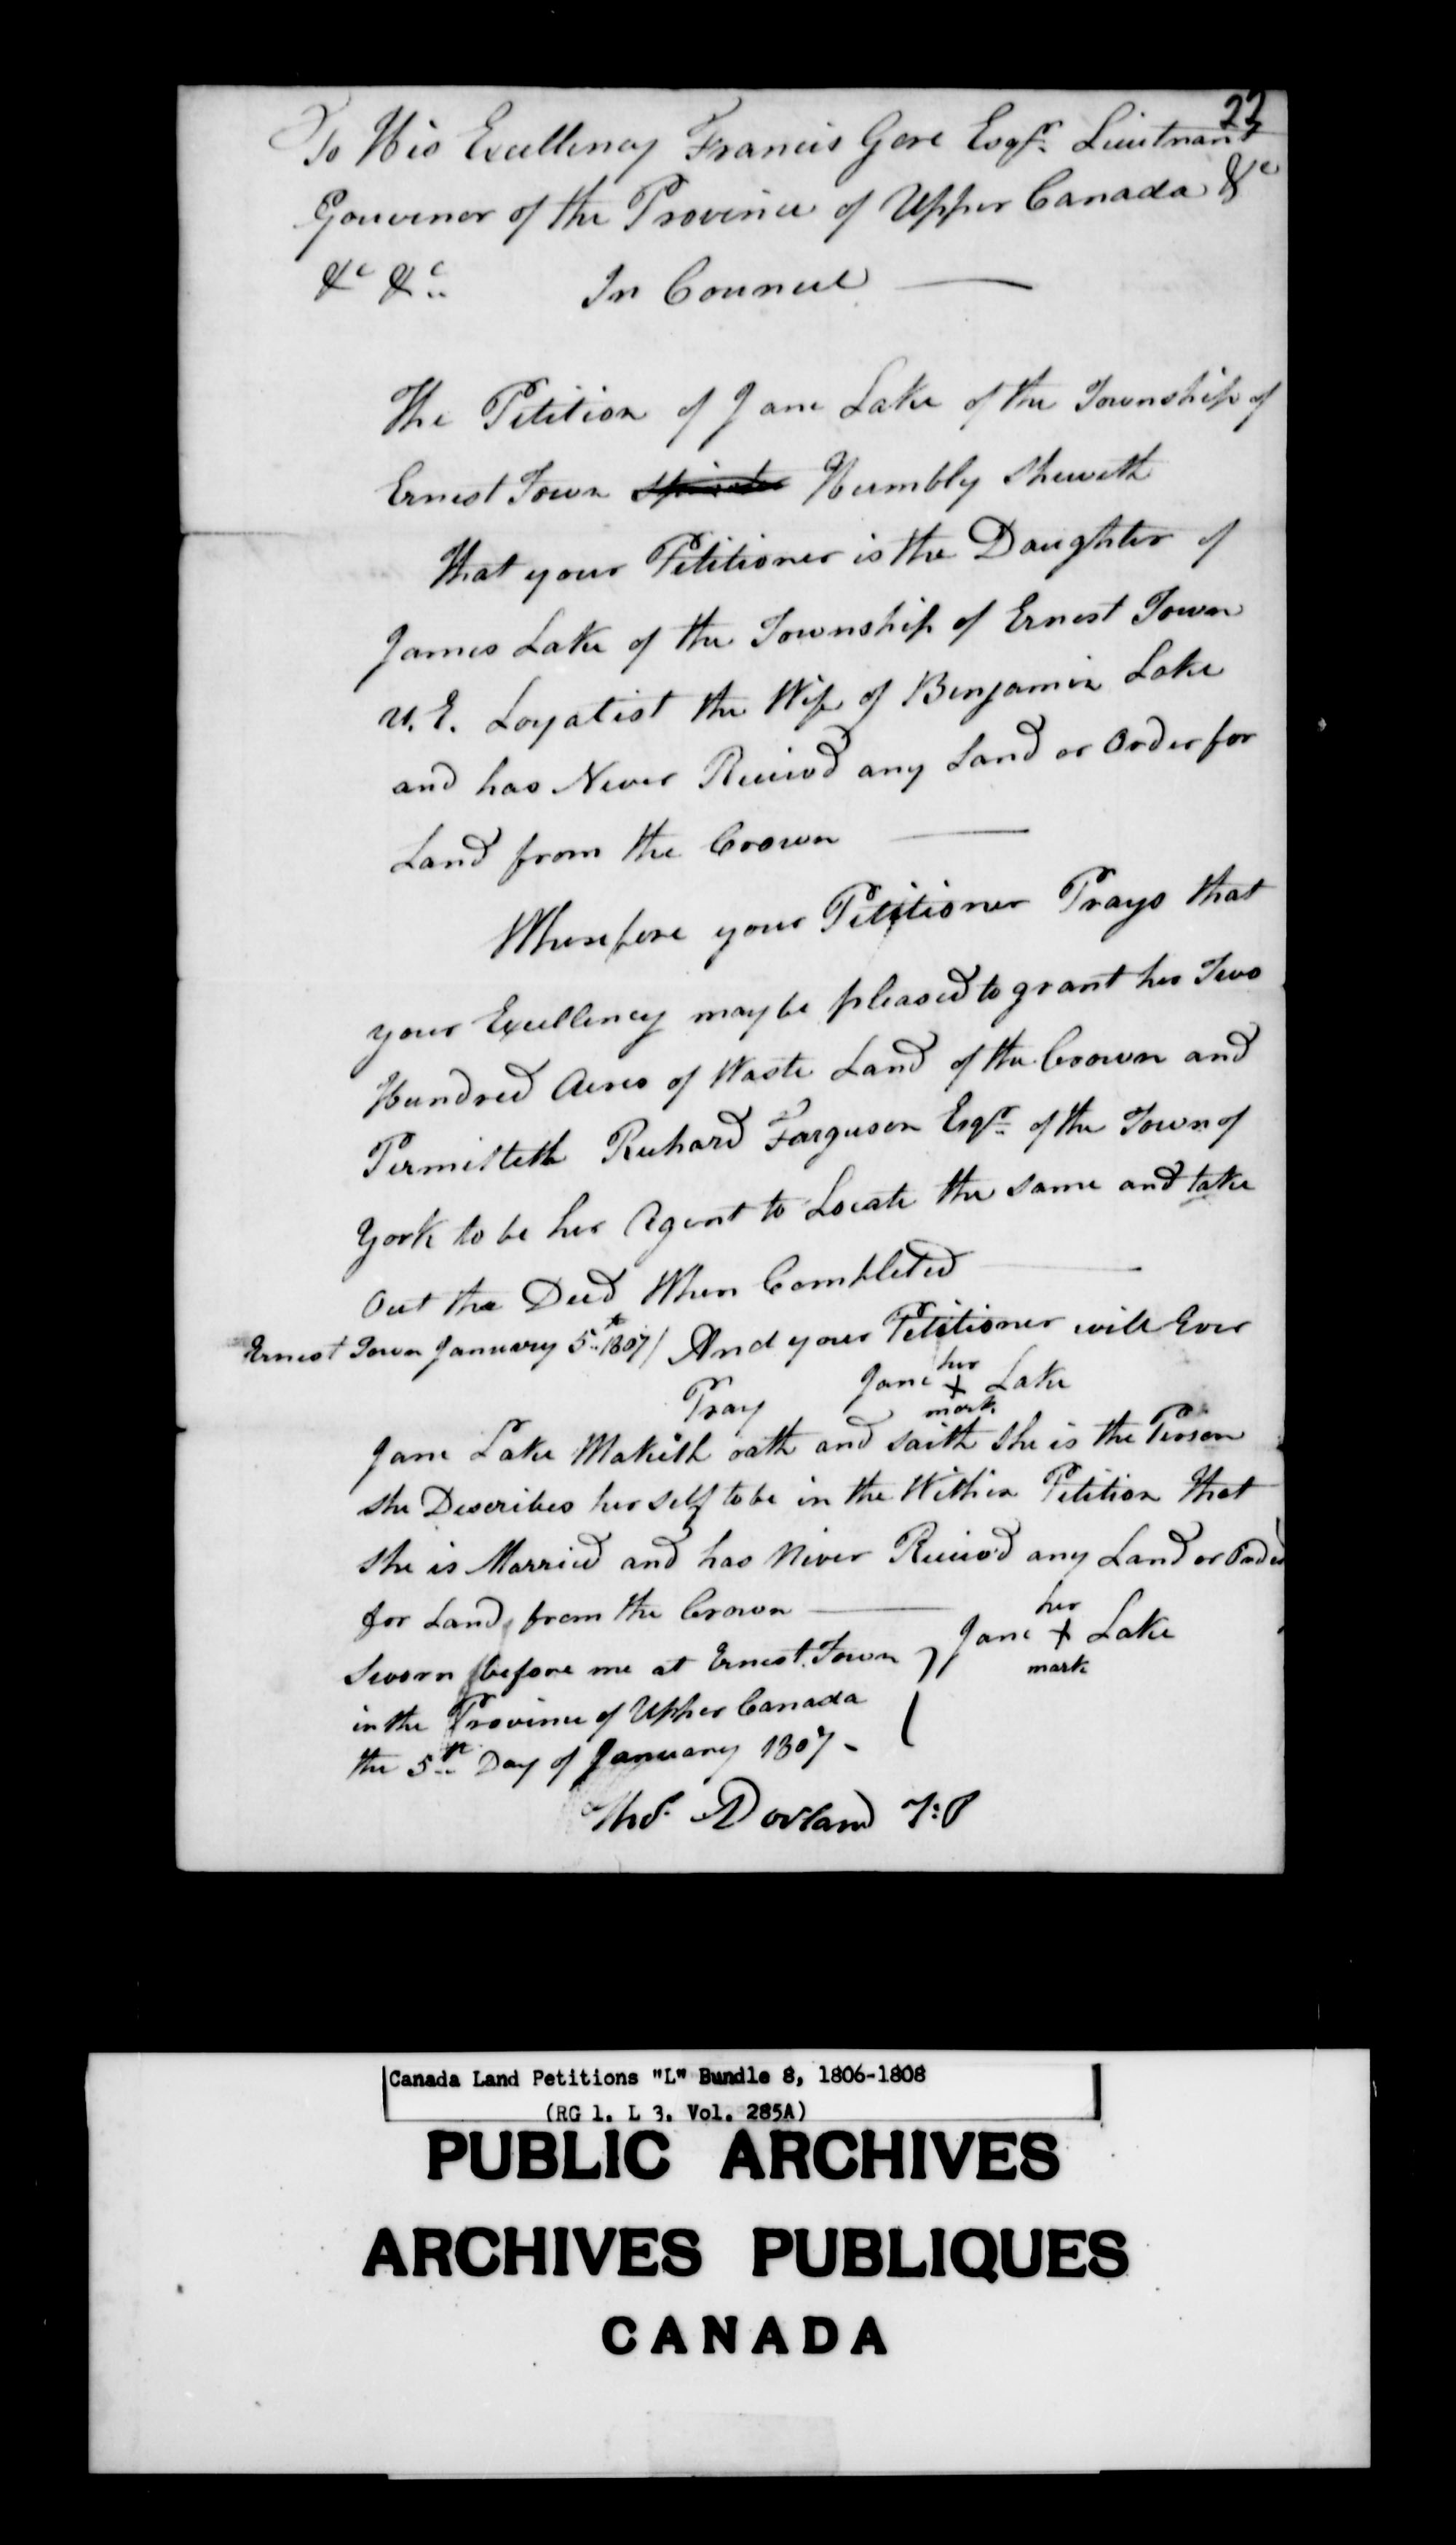 22
To His Excellency Francis Gore Esqr. Lieutnant
Gouvenor of the Province of Upper Canada &c
&c &c In Council
The Petition of Jane Lake of the Township of
Ernest Town Humbly sheweth
That your Petitioner is the Daughter of
James Lake of the Township of Ernest Town
U. E. Loyalist the Wife of Benjamin Lake
and has Never Receivd any Land or Order for
Land from the Crown
Wherefore your Petitioner Prays that
your Excellency may be pleased to grant her Two
Hundred Acres of Waste Land of the Crown and
Permitteth Richard Farguson Esqr. of the Town of
York to be her Agent to Locate the same and take
out the Deed When Completed
Ernest Town January 5th 1807 / And your Petitioner will Ever
Pray Jane her + mark Lake
Jane Lake Maketh oath and saith she is the Person
she Describes herself to be in the Within Petition That
she is Married and has Never Receivd any Land or Order
for Land from the Crown
Jane her + mark Lake
Sworn before me at Ernest Town
in the Province of Upper Canada
the 5th Day of January 1807 -
Thos. Dorland J:P
Canada Land Petitions "L" Bundle 8, 1806-1808
(RG 1. L 3. Vol. 285A)
PUBLIC ARCHIVES
ARCHIVES PUBLIQUES
CANADA